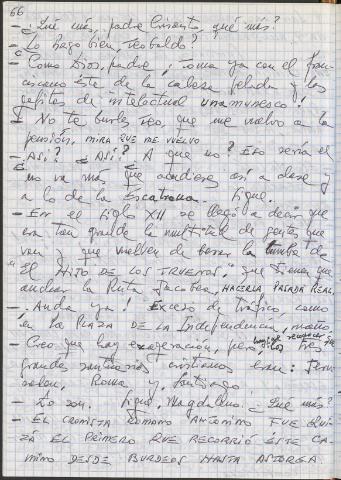 66
- ¿Qué más, padre Cuesants, qué más?
- ¿Lo hago bien, teobaldo?
- ¡Como Dios, padre, ; toma ya con el fran-
ciscano éste de la cabeza pelada y las
gafitas de intelectual unamunesco!
- No te burles teo, que me vuelvo a la
pensión, MIRA QUE ME VUELVO
- ¿Así? ¿Así? ¿A que no? Eso sería el
no va más que acudieras así a clase y
a lo de la Escatrona. Sigue.
- En el siglo XII se llegó a decir que
era tan grande la multitud de gentes que
van y que vuelven de besar la tumba de
"EL HIJO DE LOS TRUENOS, que tienen que
anchar la Ruta Jacobea, HACERLA PASADA REAL.
- ¡Anda ya! Exceso de tráfico, como
en la PLAZA DE LA Independencia, mano.
- Creo que hay exageración, pero, los tres
grandes santuarios cristianos eran: Jeru
salen, Roma y Santiago
- Lo son. Sigue, Magdaleno. ¿Qué más?
- EL CRONISTA ROMANO ANTONINO FUE QUI-
ZÁ EL PRIMERO QUE RECORRIÓ ESTE CA-
MINO DESDE BURDEOS HASTA ASTORGA